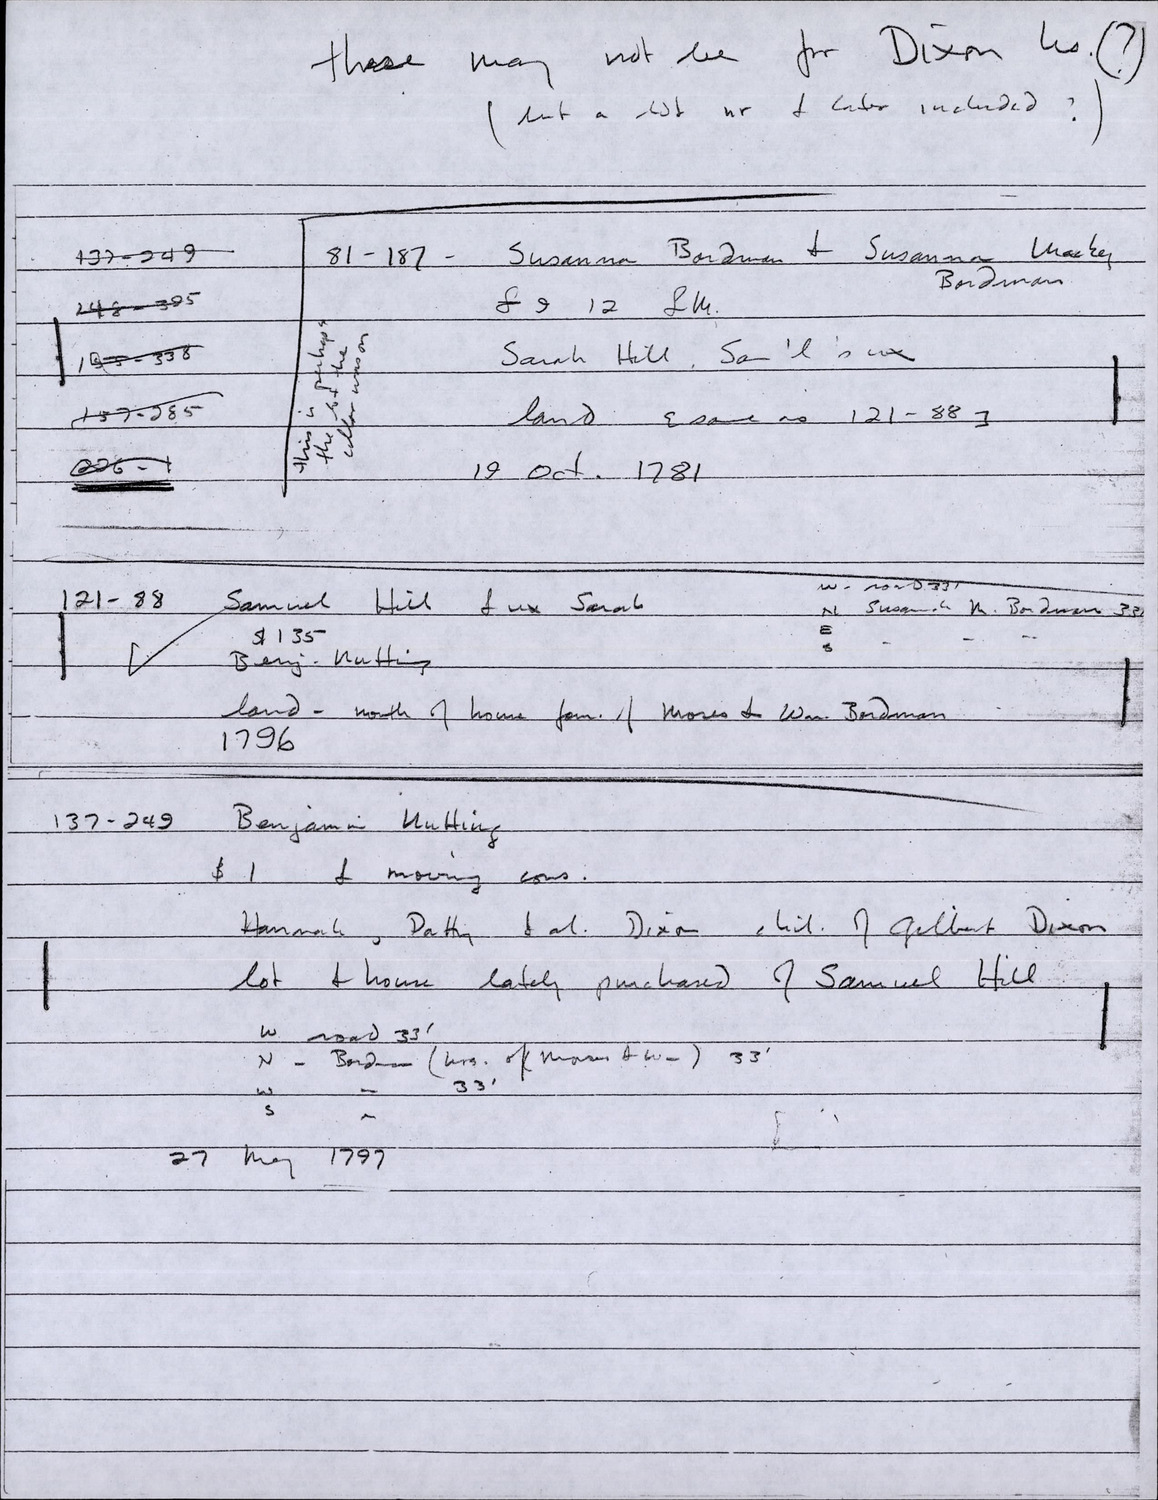 these may not be for Dixon hs. (?)
(but a lot nr & later included ?)
137-249
148-395
195-338
157-285
226-1
81-187- Susanna Bordman & Susanna Mackey
Bordman
£ 9 12 LM.
Sarah Hill, Sa'l's ux
land [same as 121-88]
19 Oct. 1781
This is perhaps
the lot the
cellar was on
121-88 Samuel Hill & ux Sarah
$135
Benj. Nutting
land - north of home farm of Moses & Wm. Bordman
1796
W- road 33'
N Susanah M. Bordman 33
E
S - - --
137-249 Benjamin Nutting
$1 & moving cons.
Hannah, Patty & al. Dixon chil. of Gilbert Dixon
lot & house lately purchased of Samuel Hill
W road 33'
N - Bordman (hrs. of Moses & Wm) 33'
W - 33'
S -
27 May 1797